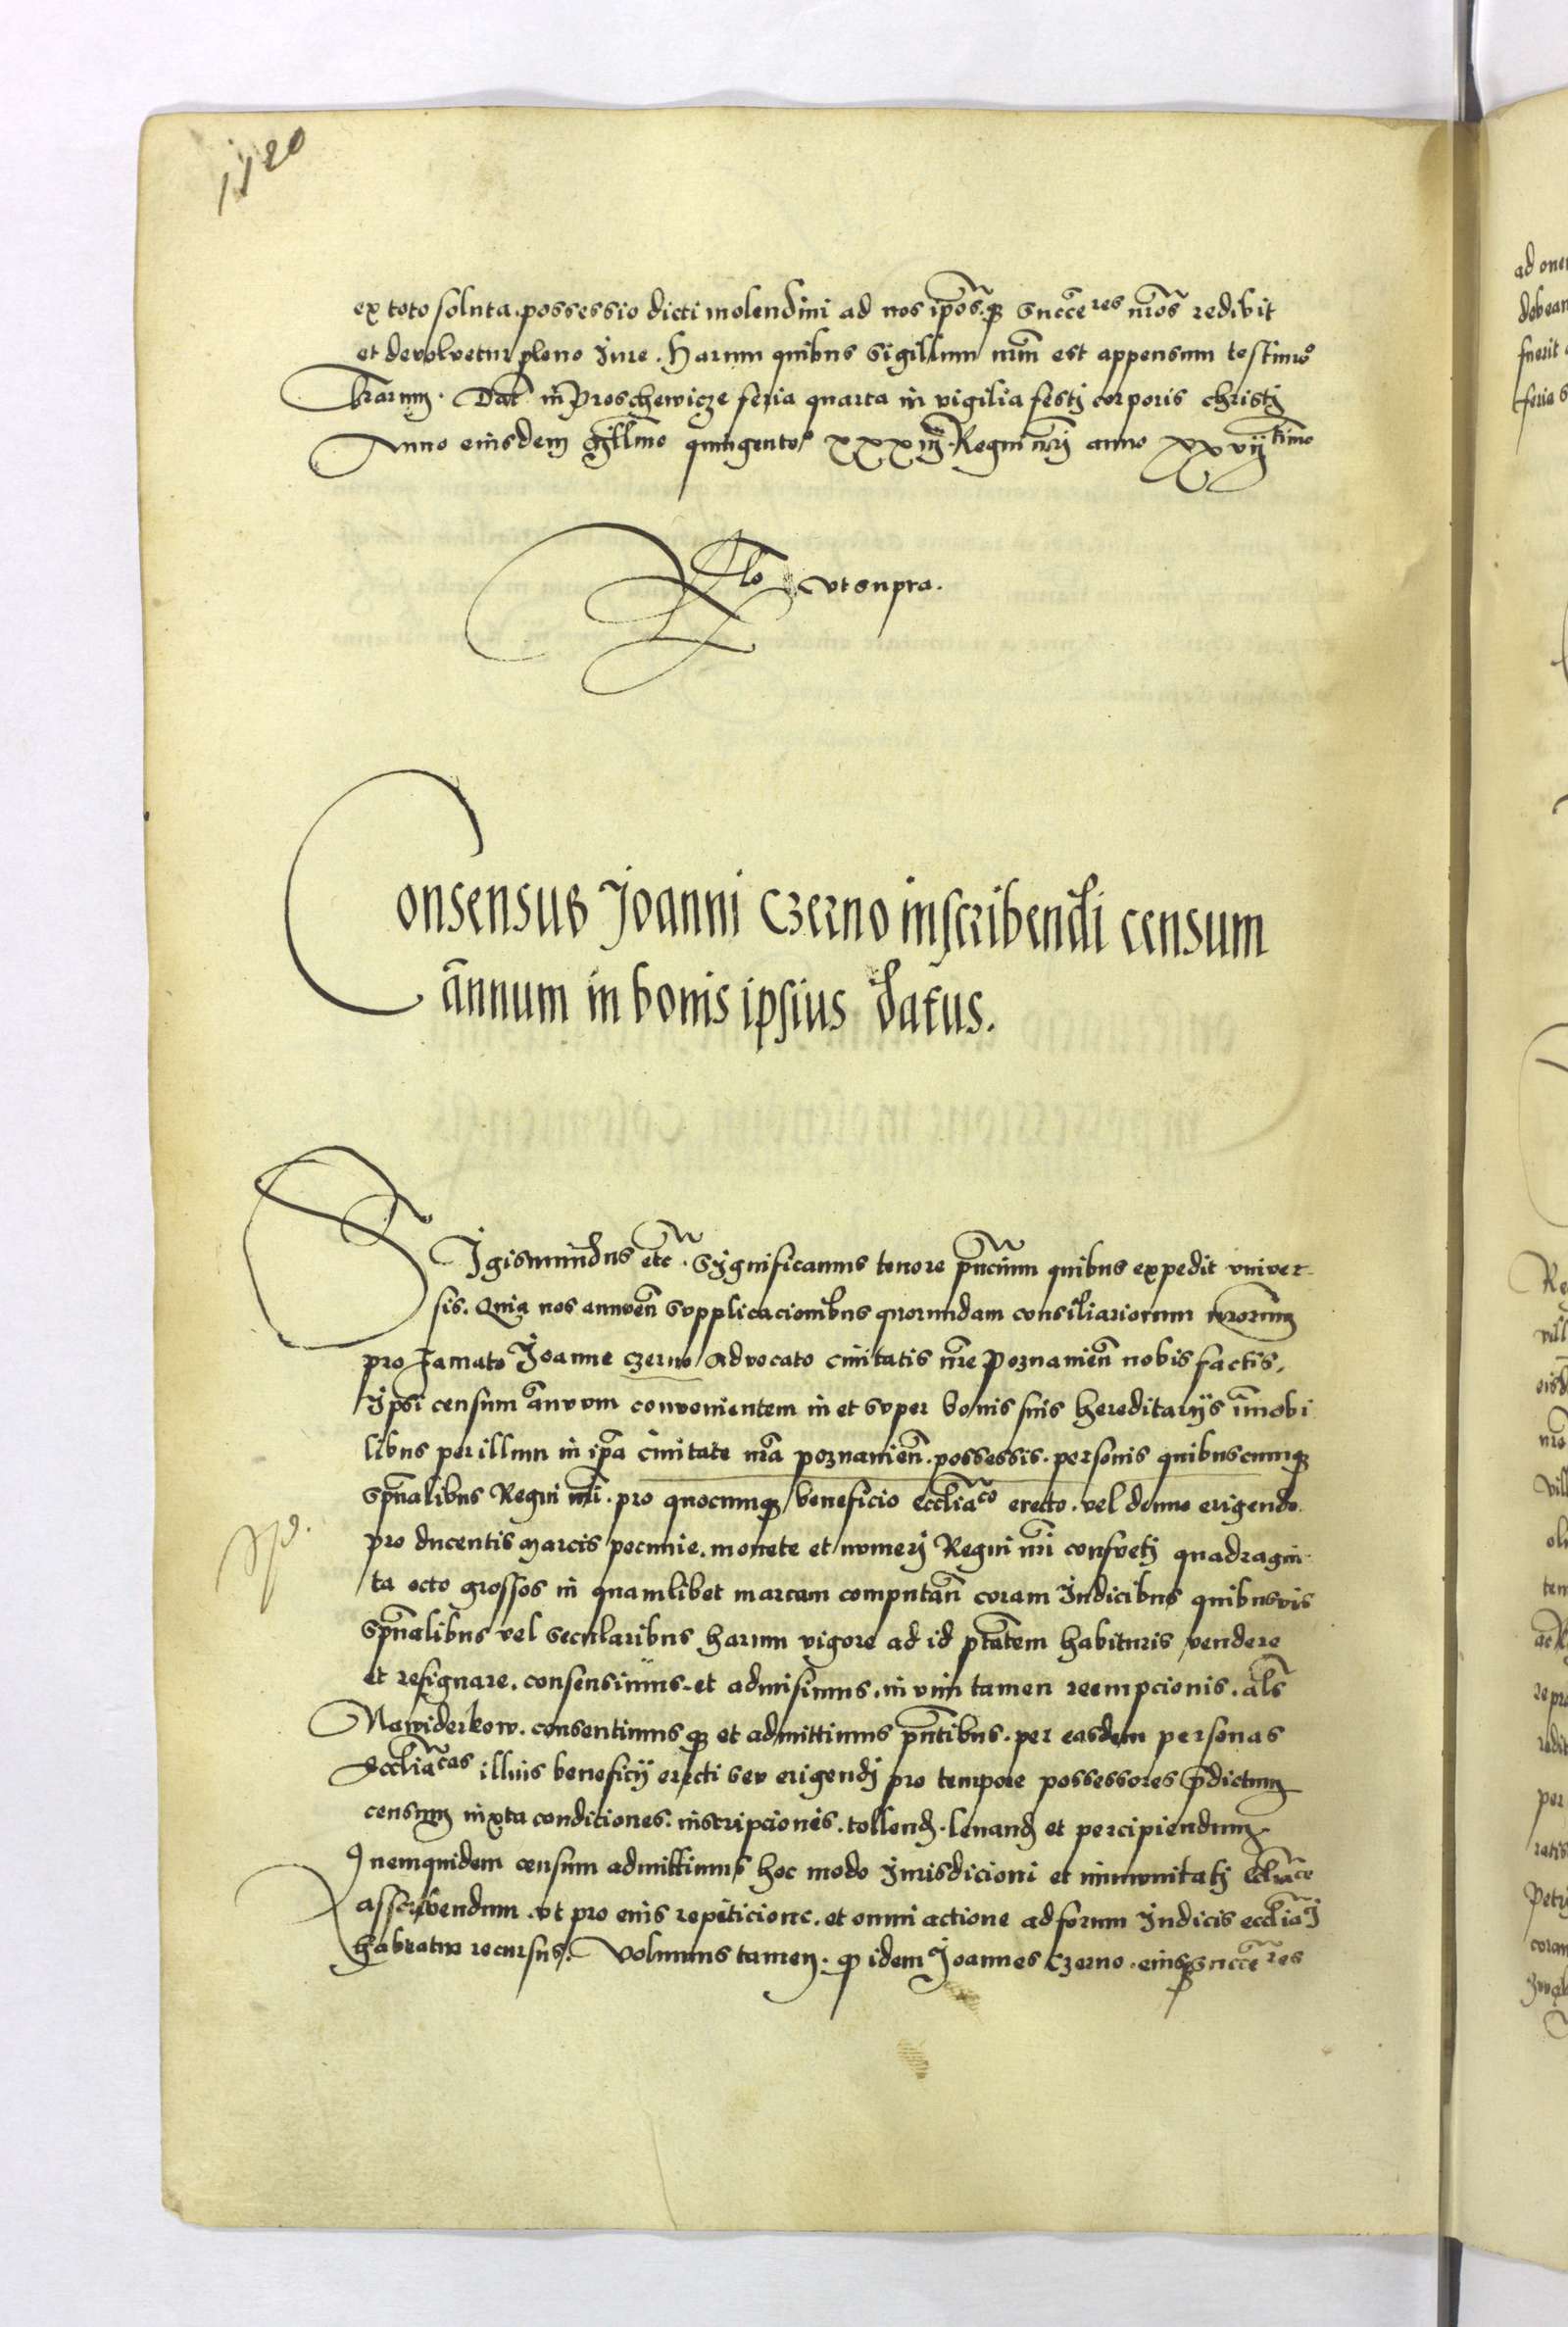 1120
ex toto soluta. possessio dicti molendini ad nos ip̃os.q̃ succẽres nr̃os redibit
et devolvetur pleno Jure. Harum quibus sigillum nr̃m est appensum testimo
lr̃arum. Dat̃ in Proschewicze feria quarta in vigilia festj corporis christj
Anno eiusdem millm̃o quingento xxxiij Regni nr̃j anno xxvijtimo
Rlo vt supra.
Consensus Joanni Czerno inscribendi censum
ãnnum in bonis ipsius datus.
SIgismundus etc̃. Significamus tenore pñcium quibus expedit univer
sis. Quia nos annueñ supplicacionibus quorundam consiliariorum nr̃orum
pro famato Joanne Czerno advocato civitatis nr̃e Poznanieñ nobis factis,
ipsi censum ãnuum convenientem in et super bonis suis hereditarijs im̃obi
libus per illum in ip̃a civitate nr̃a poznanieñ. possessis. personis quibuscumq̃
sp̃ualibus Regni nr̃i. pro quocumq̃ beneficio eccliãco erecto. vel denuo erigendo
pro ducentis marcis pecunie. monete et numerj Regni nr̃i consuetj quadragin
ta octo grossos in quamlibet marcam computañ coram Judicibus quibusvis
sp̃ualibus vel secularibus harum vigore ad id ptãtem habituris vendere
et resignare. consensimus et admisimus. in vim tamen reempcionis. als̃
Nawiderkow. consentimusq̃ et admittimus pñtibus. per easdem personas
Eccliãcas illius beneficij erecti seu erigendj pro tempore possessores p̃dictum
censum iuxta condiciones. inscripcionis. tollend̃. levand̃ et percipiendum
Quemquidem censum admittimus hoc modo Jurisdicioni et immunitatj Eccliãce
asscribendum. vt pro eius repeticione. et omni actione ad forum Judicis eccliãcj
habeatur recursus. Volumus tamen. q̃ idem Joannes Czerno. eiusq̃ succẽres